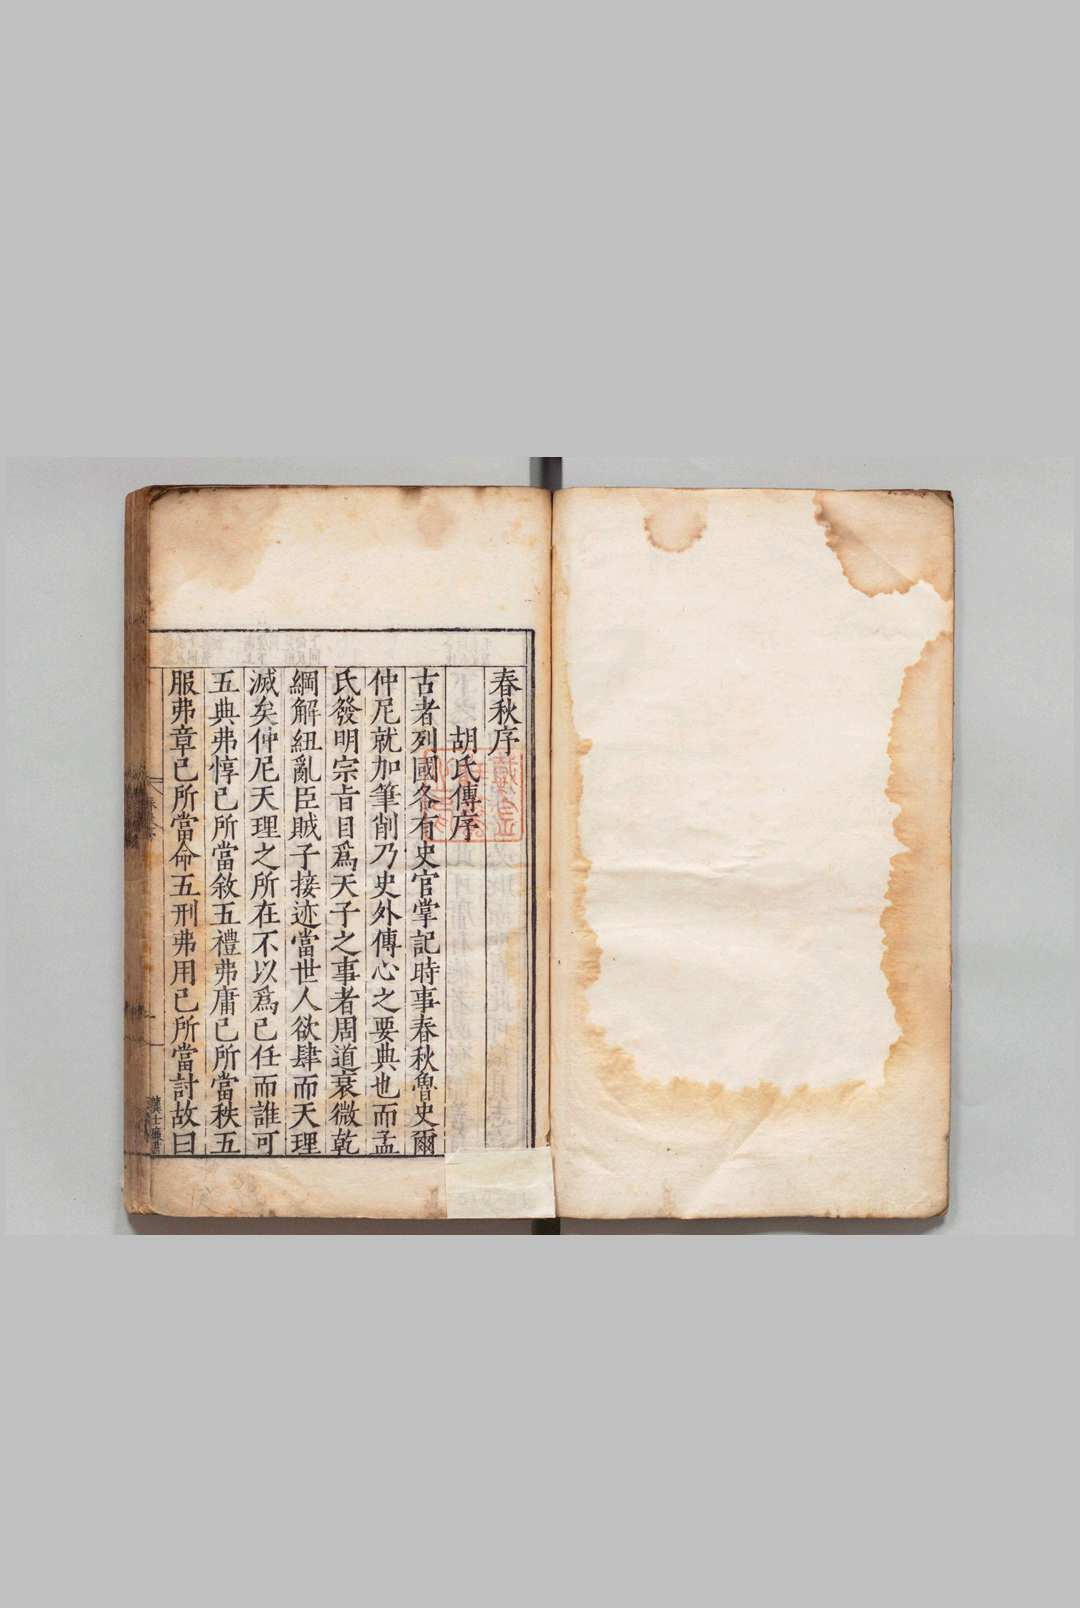 春秋序
胡氏傳序
古者列國各有史官掌記時事春秋魯史爾
仲尼就加筆削乃史外傳心之要典也而孟
氏發明宗旨目爲天子之事者周道衰微乾
綱解紐亂臣賊子接迹當世人欲肆而天理
滅矣仲尼天理之所在不以爲己任而誰可
五典弗惇己所當敘五禮弗庸己所當秩五
服弗章己所當命五刑弗用己所當討故曰